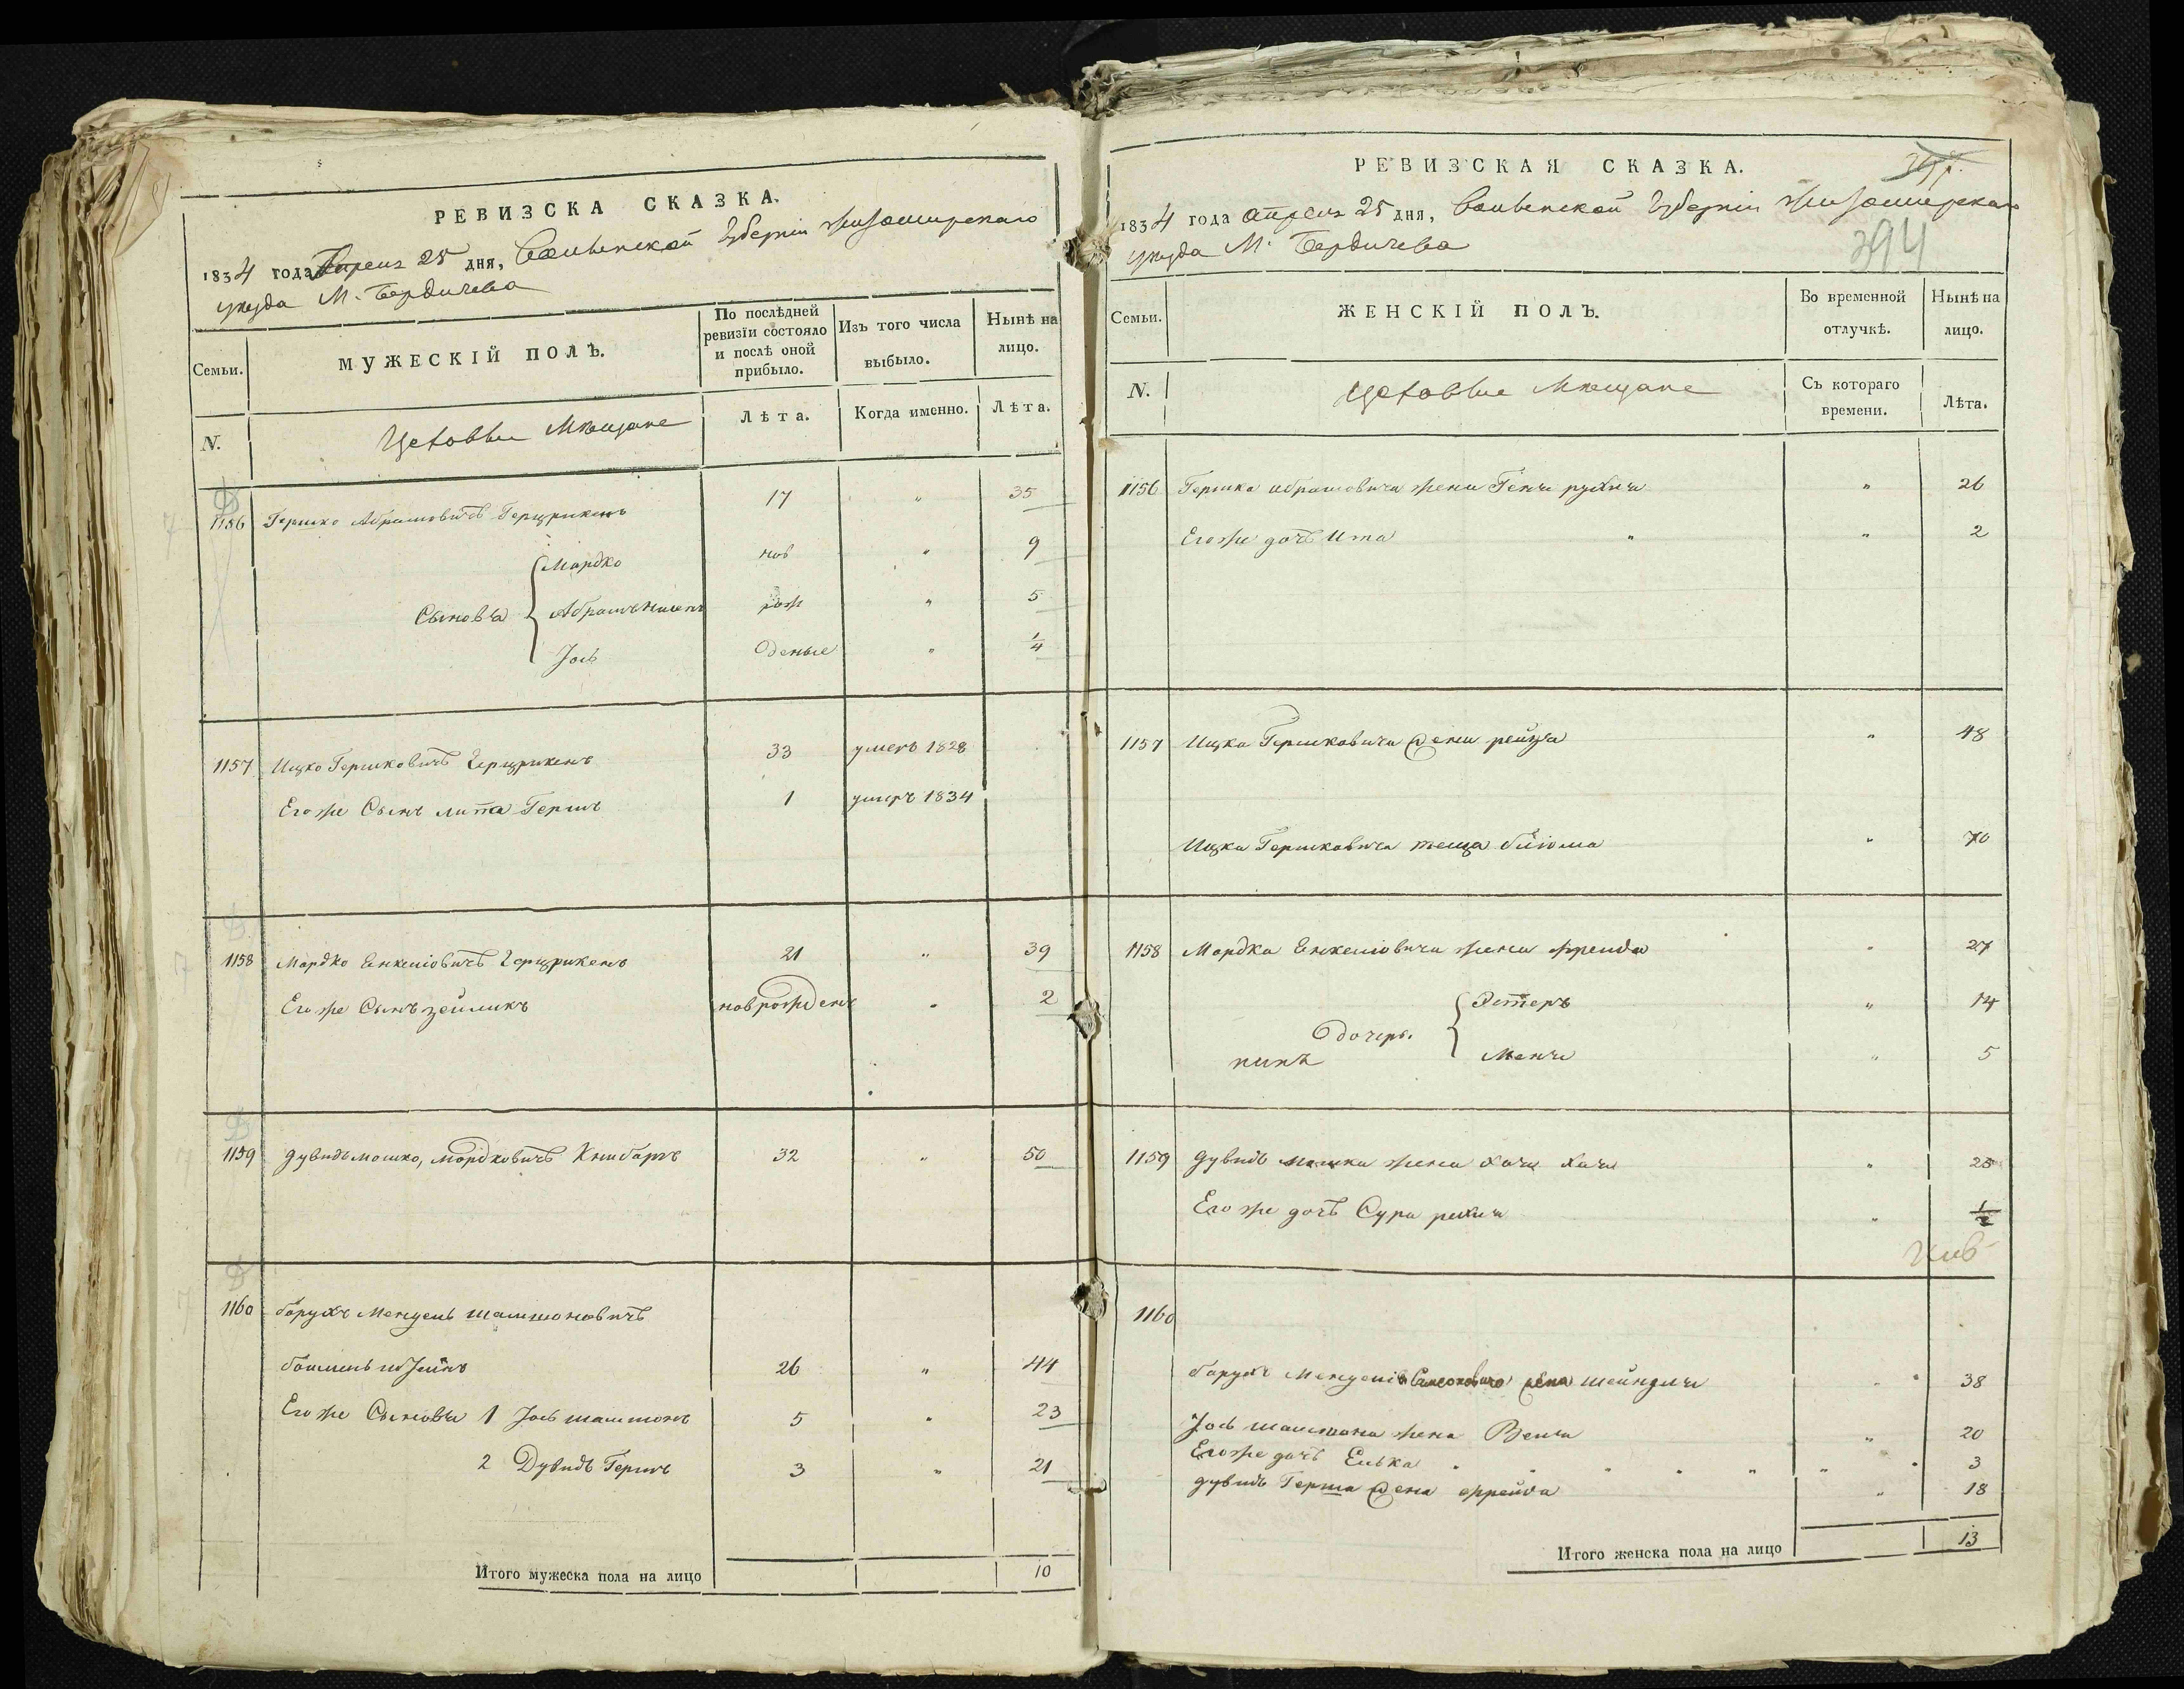 РЕВИЗСКА СКАЗКА.
1834 года Апреля 25 дня, Волынской Губерніи Житомирскаго
уезда М. Бердичева
Семьи.
МУЖЕСКІЙ ПОЛЪ.
По послѣдней ревизіи состояло и послѣ оной прибыло.
Изъ того числа выбыло.
Нынѣ на лицо.
N.
Цеховые Мѣщане
Лѣта.
Когда именно.
Лѣта.
1156 Гершко Абрамовичъ Герцрикенъ 17 " 35
Мордко нов " 9
Сыновья Абрамъ рож " 5
Іось деные " 1/4
1157 Ицко Гершковичъ Герцрикенъ 33 умеръ 1828
Егоже Сынъ липа Гершъ 1 умеръ 1834
1158 Мордко Енкелювичъ Герцрикенъ 21 " 39
Егоже Сынъ зейликъ новрожденъ " 2
1159 дувидъ мошко, мордковичъ 32 " 50
1160 борухъ Мендель шаммоновичъ
26 " 44
Егоже Сыновья 1 Іось шаммонъ 5 " 23
2 Дувидъ Гершъ 3 " 21
Итого мужеска пола на лицо 10
РЕВИЗСКАЯ СКАЗКА.
1834 года апреля 25 дня, Волынской Губерніи Житомирскаго
394
уезда М. Бердичева
Семьи.
ЖЕНСКІЙ ПОЛЪ.
Во временной отлучкѣ.
Нынѣ на лицо.
N.
Цеховые Мѣщане
Съ котораго времени.
Лѣта.
1156 Гершка абрамовича жена Геня рухля " 26
Егоже дочь Ита " " 2
1157 Ицка Гершковича жена рейза " 48
Ицка Гершковича теща блюма " 70
1158 Мордка Енкелювича жена фрейда " 27
Эстеръ " 14
дочери.
Меня " 5
1159 дувидъ мошка жена хая " 25
Егоже дочь Сура рехля " 1/2
1160
борухъ Менделя жена шейндля " 38
Іось шаммона жена Бейла " 20
Егоже дочь Елька " " " " " " " 3
дувидъ Герша жена фрейда " 18
Итого женска пола на лицо 13